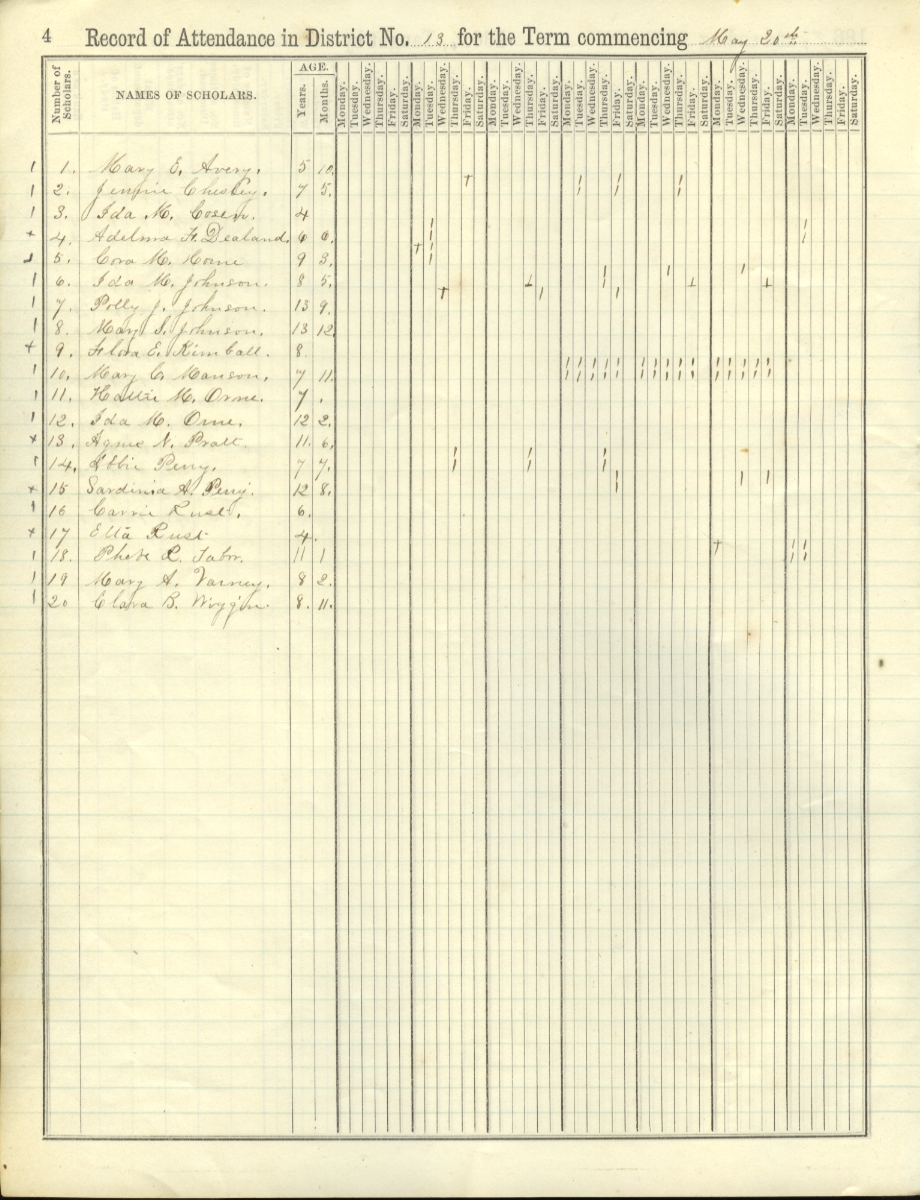 4 Record of Attendance in District No. 13 for the Term commencing May 20th
Number of Scholars. NAMES OF SCHOLARS. AGE. Years. Months. Monday. Tuesday. Wednesday. Thursday. Friday. Saturday. Monday. Tuesday. Wednesday. Thursday. Friday. Saturday. Monday. Tuesday. Wednesday. Thursday. Friday. Saturday. Monday. Tuesday. Wednesday. Thursday. Friday. Saturday. Monday. Tuesday. Wednesday. Thursday. Friday. Saturday. Monday. Tuesday. Wednesday. Thursday. Friday. Saturday. Monday. Tuesday. Wednesday. Thursday. Friday. Saturday.
1. Mary E. Avery. 5 10.
2. Jennie Chesley. 7 5.
3. Ida M. 4
4. Adelma F. Dealand. 6 6.
5. Cora M. Horne 9 3.
6. Ida M. Johnson. 8 5.
7. Polly J. Johnson. 13 9.
8. Mary S. Johnson. 13 12
9. Flora E. Kimball. 8.
10. Mary C. Manson. 7 11.
11. Hattie M. Orne. 7 .
12. Ida M. Orne. 12 2.
13. Agnes N. Pratt. 11. 6.
14. Abbie Perry. 7 7.
15 Sardinia A. Perry. 12 8.
16 Carrie Rust. 6.
17 Etta Rust 4.
18. Phebe R. Tabor. 11 1
19 Mary A. Varney. 8 2.
20 Clara B. Wiggin. 8. 11.